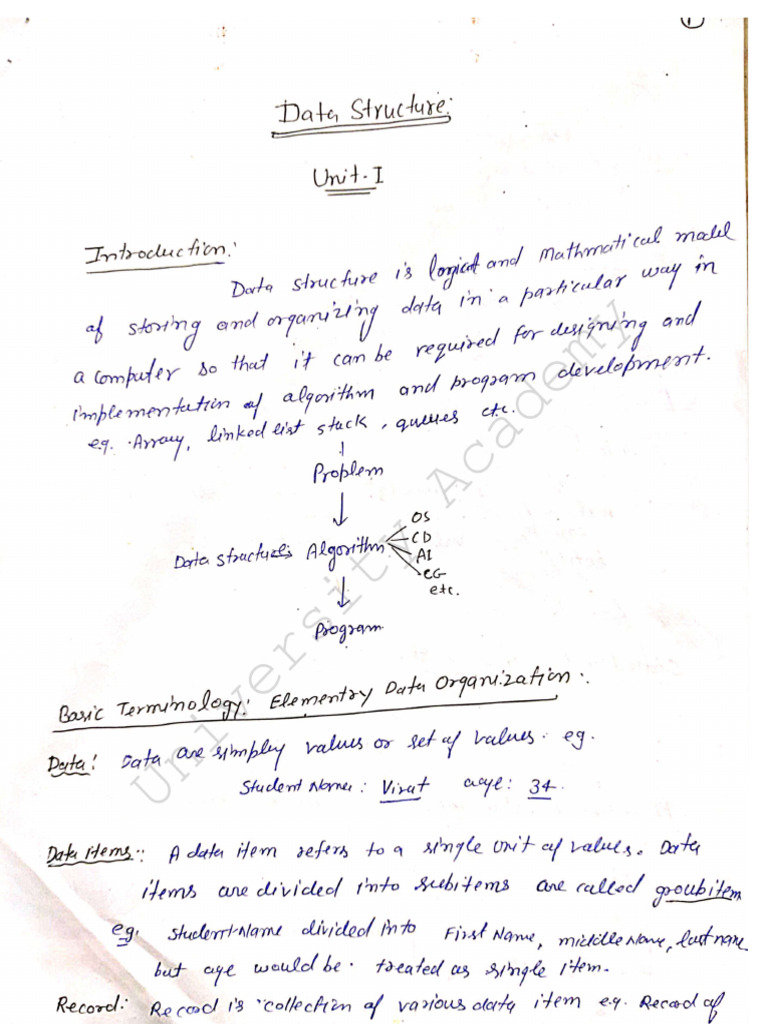 1
Data Structure:
Unit-I
Introduction:
Data structure is logical and Mathmatical model
of storing and organizing data in a particular way in
a computer so that it can be required for designing and
implementation of algorithm and program development.
e.g. Array, linked list stack, queues etc.
Problem
OS
CD
Data structures Algorithm
AI
CG
etc.
Program
Basic Terminology: Elementry Data Organization:
Data: Data are simpley values or set of values. eg.
Student Name: Virat age: 34
Data items: A data item refers to a single unit of values. Data
items are divided into subitems are called groubitem
eg. Student-Name divided into First Name, middle Name, last name
but age would be treated as single item.
Record: Record is collection of various data item e.g. Record of
University Academy